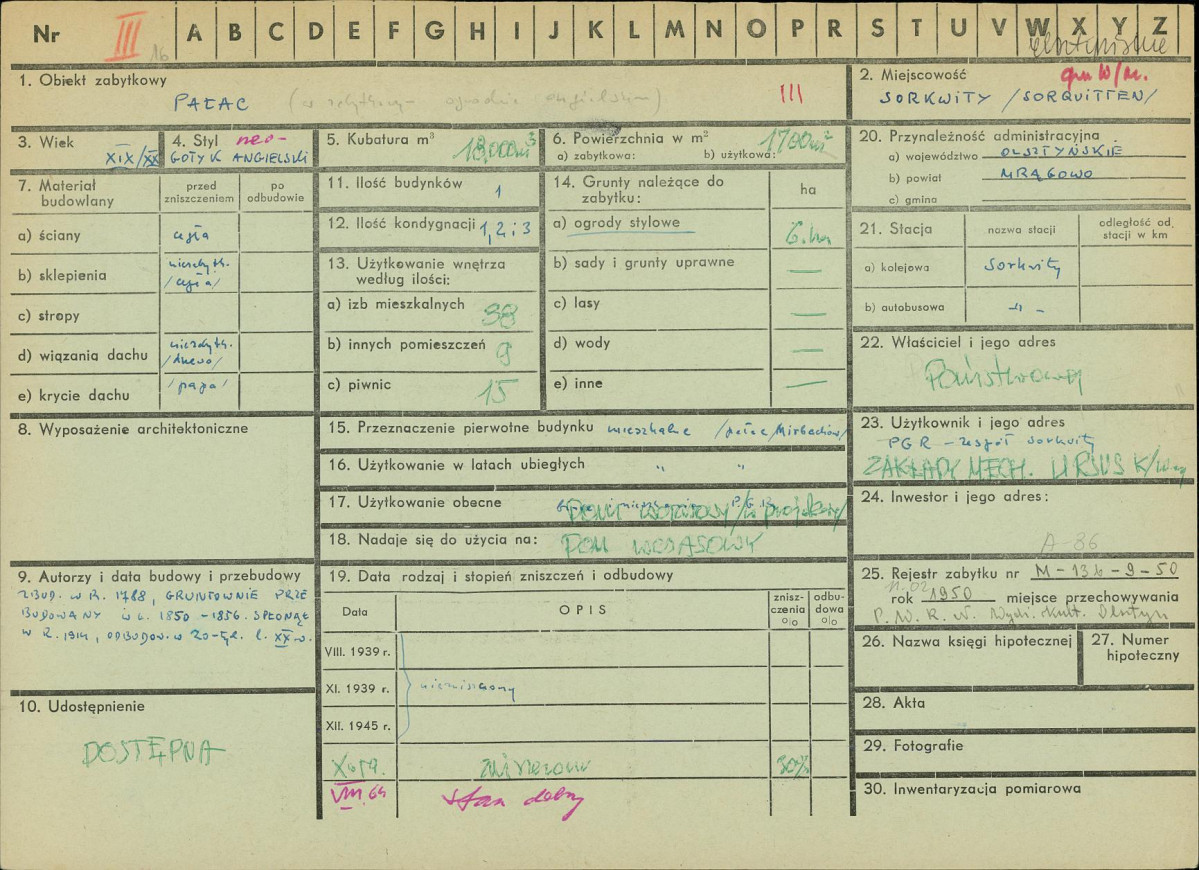 Nr III 16 A B C D E F G H I J K L M N O P R S T U V W X Y Z
olsztyńskie
1. Obiekt zabytkowy
PAŁAC III
2. Miejscowość
SORKWITY /SORQUITTEN/
3. Wiek
XIX/XX
4. Styl neo-
GOTYK ANGIELSKI
5. Kubatura m³
18.000 m³
6. Powierzchnia w m² 1700 m²
a) zabytkowa: b) użytkowa:
20. Przynależność administracyjna
a) województwo OLSZTYŃSKIE
b) powiat MRĄGOWO
c) gmina
7. Materiał budowlany
przed zniszczeniem
po odbudowie
a) ściany cegła
b) sklepienia /cegła/
c) stropy
d) wiązania dachu /drewno/
e) krycie dachu /papa/
11. Ilość budynków 1
12. Ilość kondygnacji 1, 2 i 3
13. Użytkowanie wnętrza
według ilości:
a) izb mieszkalnych 38
b) innych pomieszczeń
c) piwnic 15
14. Grunty należące do
zabytku:
ha
a) ogrody stylowe 6. ha
b) sady i grunty uprawne —
c) lasy —
d) wody —
e) inne —
21. Stacja
nazwa stacji
odległość od
stacji w km
a) kolejowa Sorkwity
b) autobusowa -„-
22. Właściciel i jego adres
8. Wyposażenie architektoniczne
15. Przeznaczenie pierwotne budynku mieszkalne /pałac Mirbachów/
16. Użytkowanie w latach ubiegłych „ „
17. Użytkowanie obecne
DOM WCZASOWY /w projekcie/
18. Nadaje się do użycia na: DOM WCZASOWY
23. Użytkownik i jego adres
PGR – zespół Sorkwity
ZAKŁADY MECH. URSUS K/W-wy
24. Inwestor i jego adres:
A-86
9. Autorzy i data budowy i przebudowy
ZBUD. W R. 1788, GRUNTOWNIE PRZE
BUDOWANY w l. 1850 – 1856. SPŁONĄŁ
W R. 1914, ODBUDOW. w 20-tych l. XX w.
19. Data rodzaj i stopień zniszczeń i odbudowy
Data
OPIS
znisz-
czenia
o/o
odbu-
dowa
o/o
VIII. 1939 r.
XI. 1939 r. niezniszczony
XII. 1945 r.
30%
VIII. 64 stan dobry
25. Rejestr zabytku nr M-136-9-50
rok 1950 miejsce przechowywania
P.W.R.N. Wydz. Kult. Olsztyn
26. Nazwa księgi hipotecznej
27. Numer
hipoteczny
10. Udostępnienie
DOSTĘPNA
28. Akta
29. Fotografie
30. Inwentaryzacja pomiarowa